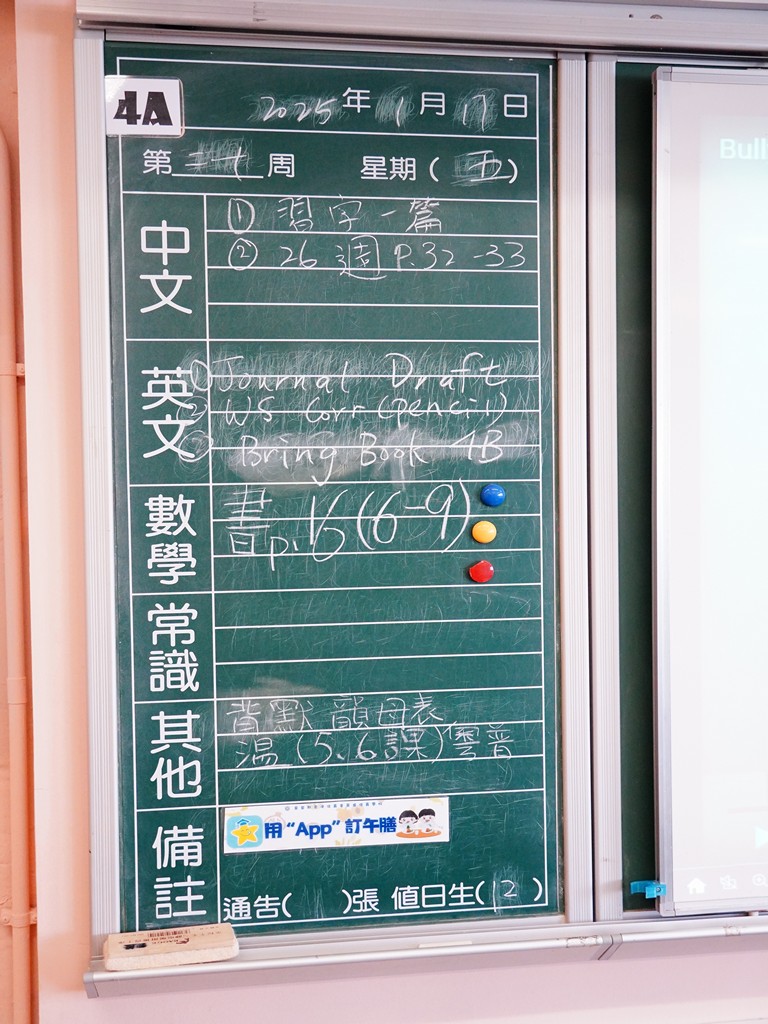 4A
2025年1月17日
第二十周 星期(五)
中文
① 習字一篇
② 26 週 P.32-33
英文
① Journal Draft
② WS Corr (pencil)
③ Bring Book 4B
數學
書p.16(6-9)
常識
其他
背默 韻母表
湯(5.6課)
備註
用“App”訂午膳
通告( )張 值日生(12)
Bull